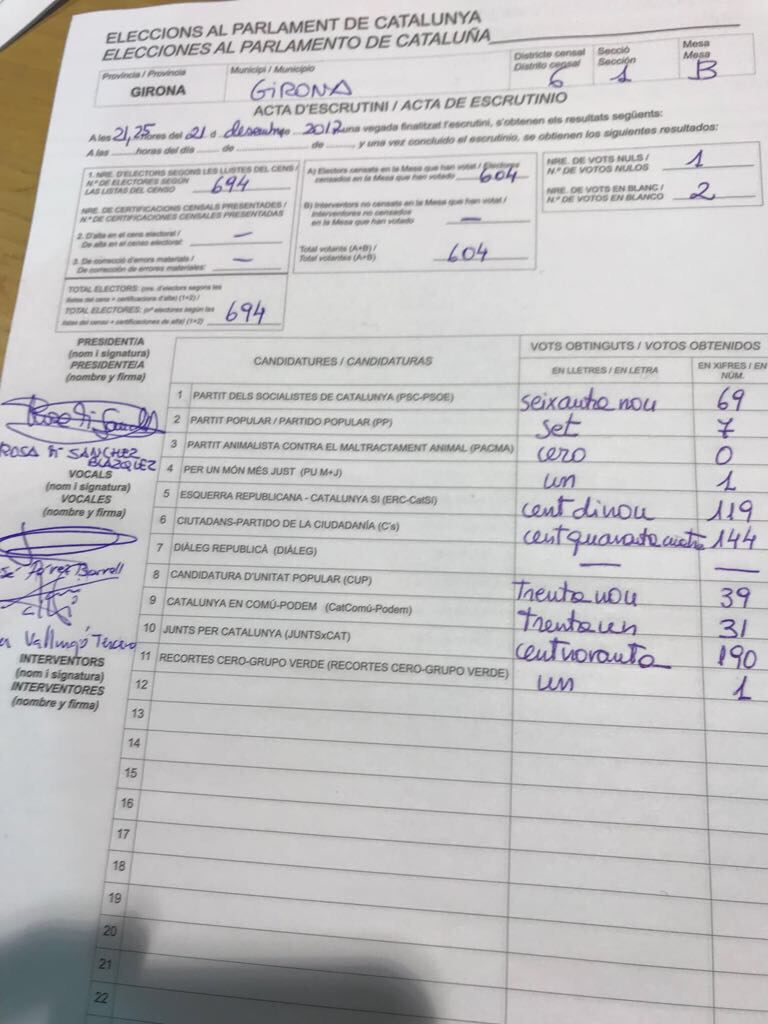 ELECCIONS AL PARLAMENT DE CATALUNYA
ELECCIONES AL PARLAMENTO DE CATALUÑA
Província / Provincia
GIRONA
Municipi / Municipio
GIRONA
Districte censal
Distrito censal
6
Secció
Sección
1
Mesa
Mesa
B
ACTA D'ESCRUTINI / ACTA DE ESCRUTINIO
A les 21,25 hores del 21 d desembre 2017 una vegada finalitzat l'escrutini, s'obtenen els resultats següents:
A las horas del día de de y una vez concluido el escrutinio, se obtienen los siguientes resultados:
1. NRE. D'ELECTORS SEGONS LES LLISTES DEL CENS /
N.º DE ELECTORES SEGÚN
LAS LISTAS DEL CENSO 694
NRE. DE CERTIFICACIONS CENSALS PRESENTADES /
N.º DE CERTIFICACIONES CENSALES PRESENTADAS
2. D'alta en el cens electoral /
De alta en el censo electoral: —
3. De correcció d'errors materials /
De corrección de errores materiales: —
TOTAL ELECTORS: (nre. d'electors segons les
llistes del cens + certificacions d'alta) (1+2) /
TOTAL ELECTORES: (nº electores según las
listas del censo + certificaciones de alta) (1+2) 694
A) Electors censats en la Mesa que han votat / Electores
censados en la Mesa que han votado 604
B) Interventors no censats en la Mesa que han votat /
Interventores no censados
en la Mesa que han votado —
Total votants (A+B) /
Total votantes (A+B) 604
NRE. DE VOTS NULS /
N.º DE VOTOS NULOS 1
NRE. DE VOTS EN BLANC /
N.º DE VOTOS EN BLANCO 2
PRESIDENT/A
(nom i signatura)
PRESIDENTE/A
(nombre y firma)
ROSA Mª SANCHEZ
BLAZQUEZ
VOCALS
(nom i signatura)
VOCALES
(nombre y firma)
INTERVENTORS
(nom i signatura)
INTERVENTORES
(nombre y firma)
CANDIDATURES / CANDIDATURAS
VOTS OBTINGUTS / VOTOS OBTENIDOS
EN LLETRES / EN LETRA
EN XIFRES / EN NÚM.
1 PARTIT DELS SOCIALISTES DE CATALUNYA (PSC-PSOE) seixanta nou 69
2 PARTIT POPULAR / PARTIDO POPULAR (PP) set 7
3 PARTIT ANIMALISTA CONTRA EL MALTRACTAMENT ANIMAL (PACMA) cero 0
4 PER UN MÓN MÉS JUST (PU M+J) un 1
5 ESQUERRA REPUBLICANA - CATALUNYA SI (ERC-CatSÍ) cent dinou 119
6 CIUTADANS-PARTIDO DE LA CIUDADANÍA (C's) cent quaranta cuatre 144
7 DIÀLEG REPUBLICÀ (DIÀLEG) — —
8 CANDIDATURA D'UNITAT POPULAR (CUP) trenta nou 39
9 CATALUNYA EN COMÚ-PODEM (CatComú-Podem) trenta un 31
10 JUNTS PER CATALUNYA (JUNTSxCAT) cent noranta 190
11 RECORTES CERO-GRUPO VERDE (RECORTES CERO-GRUPO VERDE) un 1
12
13
14
15
16
17
18
19
20
21
22